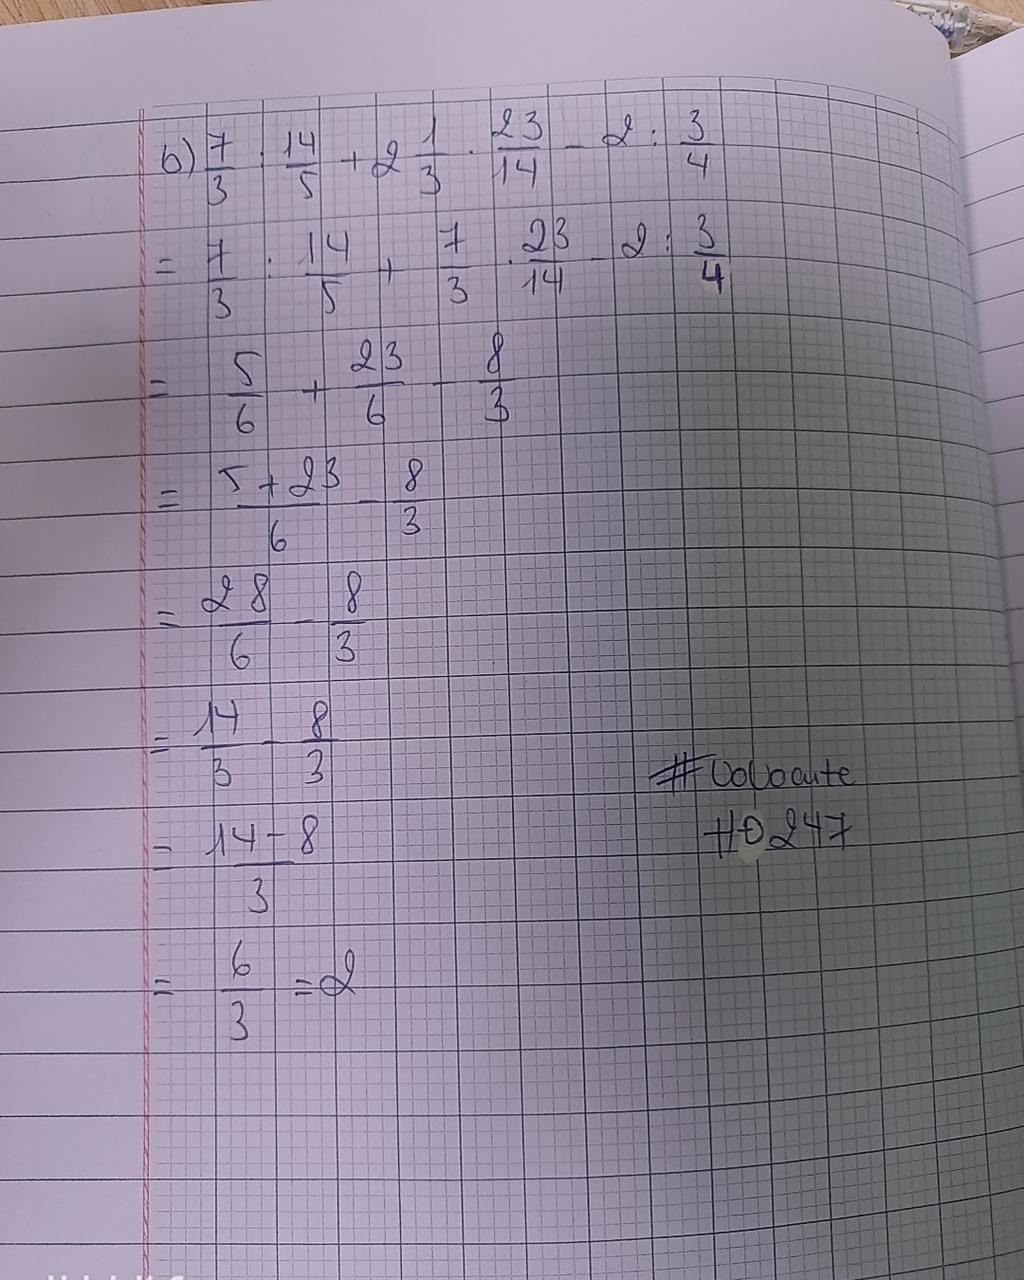 b) 7/3 : 14/5 + 2 1/3 . 23/14 - 2 : 3/4
= 7/3 : 14/5 + 7/3 . 23/14 - 2 : 3/4
= 5/6 + 23/6 - 8/3
= 5+23/6 - 8/3
= 28/6 - 8/3
= 14/3 - 8/3
= 14-8/3
= 6/3 = 2